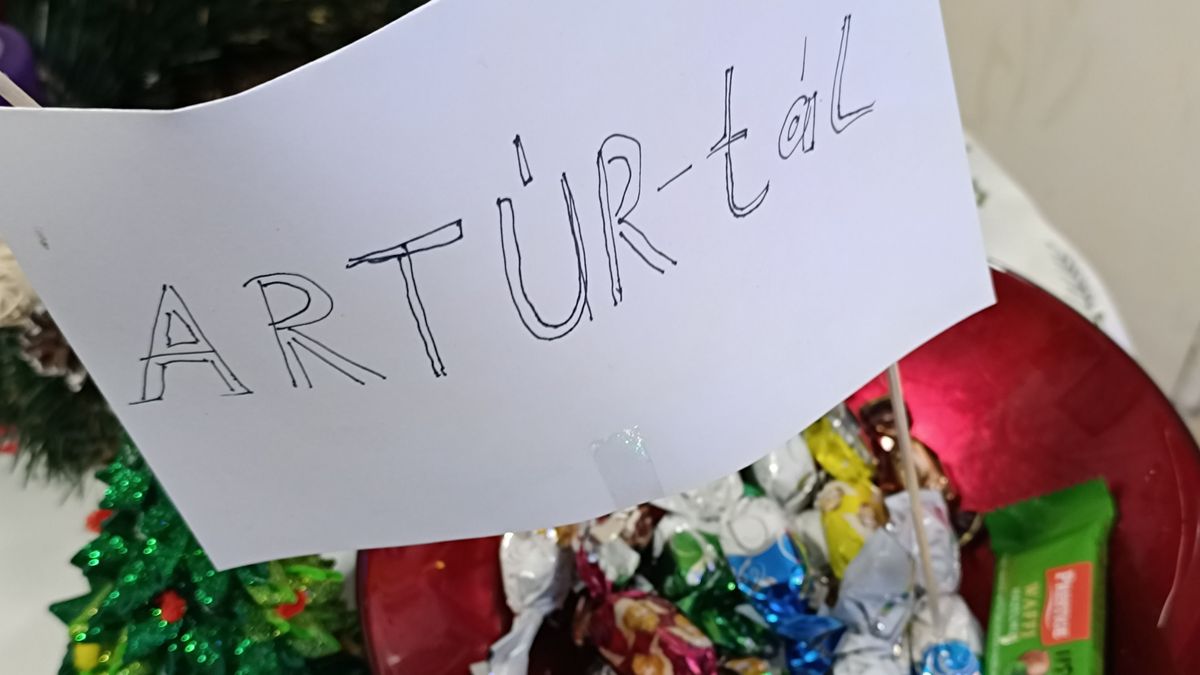 ARTÚR-tál
WAFFE